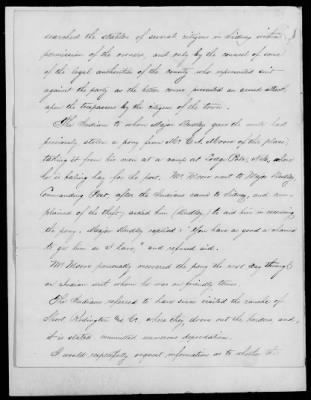 searched the stables of several citizens in Sidney without
permission of the owners, and only by the counsel of some
of the legal authorities of the county, who represented suit
against the party as the latter was prevented an armed attack
upon the trespassers by the citizens of the town.
The Indians to whom Major Studley gave the mule had
previously stolen a pony from Mr. Ed. Moore of this place;
taking it from his men at a camp at Lodge Pole, Neb, where
he is putting hay for the post. Mr Moore went to Major Studley
Commanding Post, after the Indians came to Sidney, and com-
plained of the theft, asked him (Studley) to aid him in recovering
the pony. Major Studley replied: "You have as good a chance
to get him as I have," and refused aid.
Mr Moore personally recovered the pony the next day through
an Indian with whom he was on friendly terms.
The Indians referred to have since visited the ranche of
Moore, Redington & Co. where they drove out the herders and,
it is stated committed numerous depredations.
I would respectfully request information as to whether the